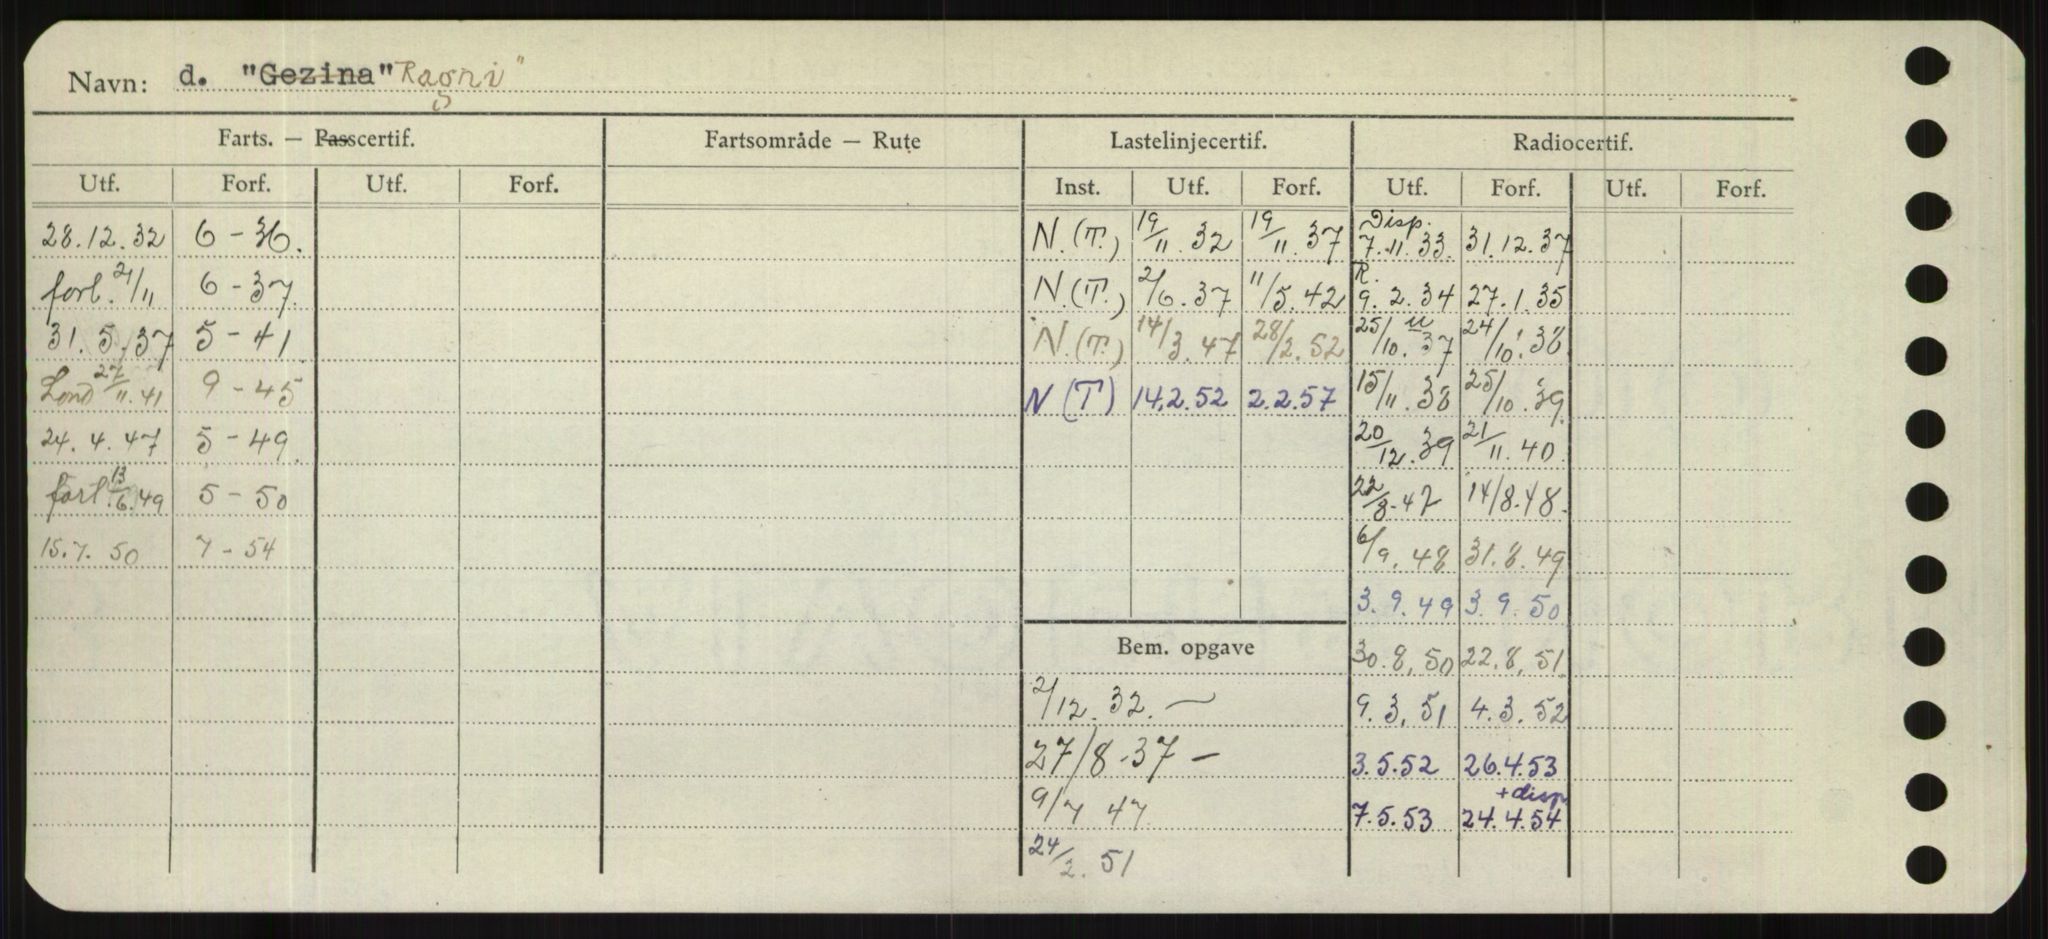 Navn: d. "Gezina" Ragni"
Farts. — Passcertif. Fartsområde — Rute Lastelinjecertif. Radiocertif.
Utf. Forf. Utf. Forf. Inst. Utf. Forf. Utf. Forf. Utf. Forf.
28.12.32 6-36. N.(T.) 19/11.32 19/11.37 Disp. 7.11.33. 31.12.37
forl. 21/11 6-37. N.(T.) 2/6.37 11/5.42 R. 9.2.34 27.1.35
31.5.37 5-41 N.(T.) 14/3.47 28/2.52 25/10.37 24/10.38
Lond 27/11.41 9-45 N (T) 14.2.52 2.2.57 15/11.38 25/10.39
24.4.47 5-49 20/12.39 21/11.40
forl 13/6.49 5-50 22/8.47 14/8.48
15.7.50 7-54 6/9.48 31.8.49
3.9.49 3.9.50
Bem. opgave 30.8.50 22.8.51
2/12.32. — 9.3.51 4.3.52
27/8-37 — 3.5.52 26.4.53
9/7 47 7.5.53 + disp 24.4.54
24/2.51